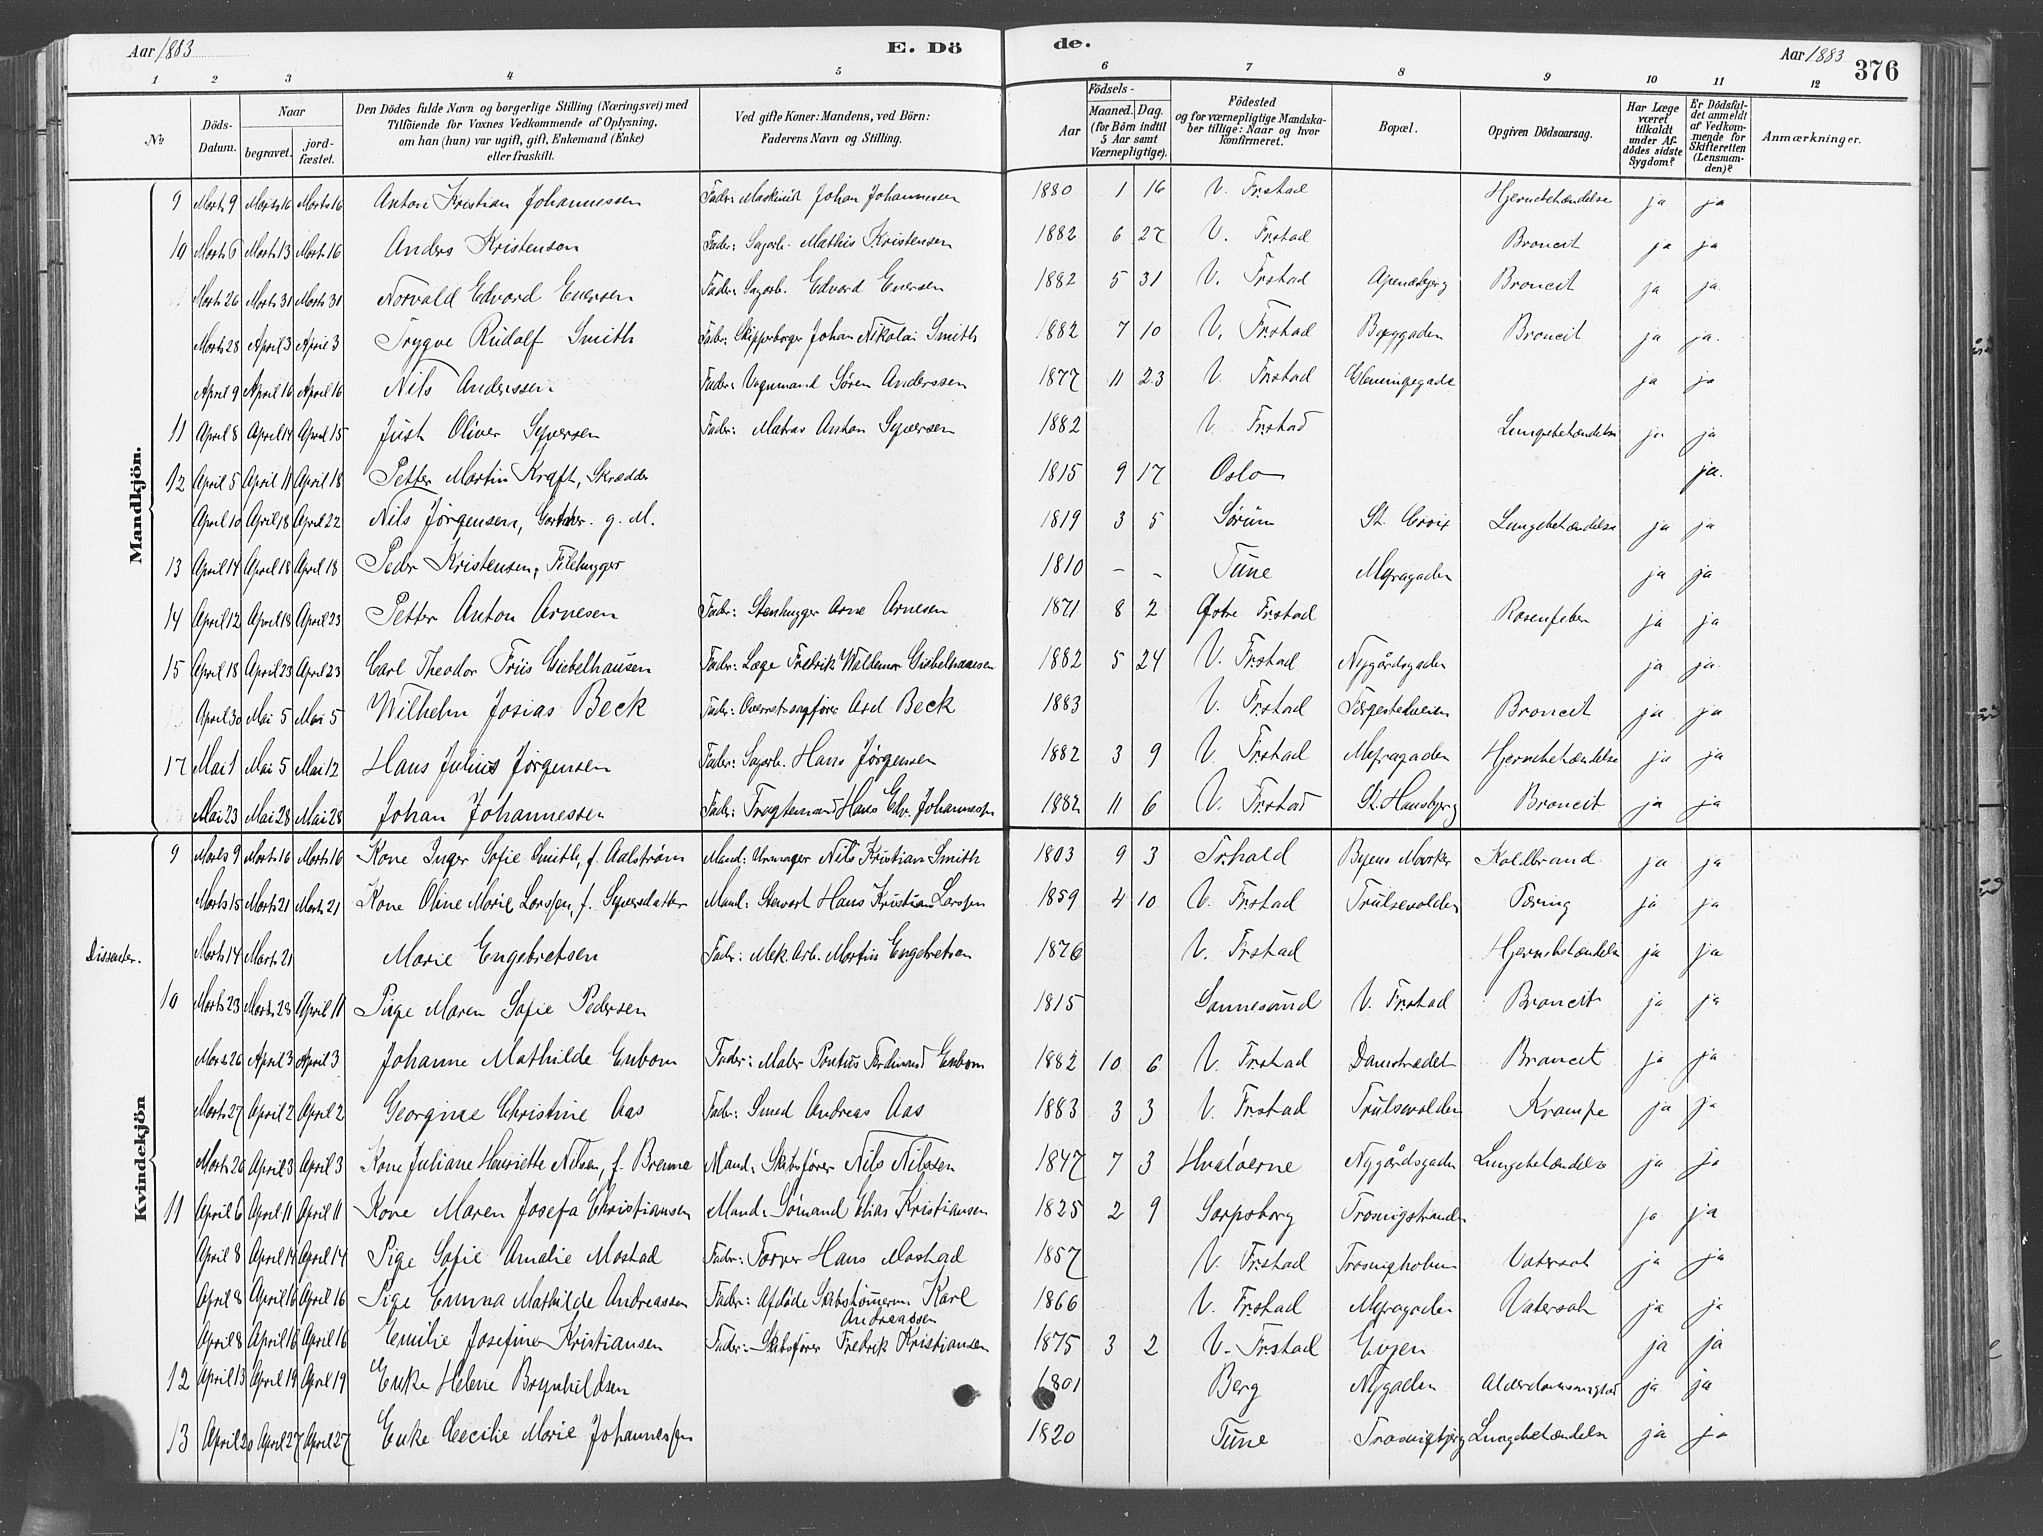 Aar 1883
E. Dö
de.
Aar 1883
376
1 2 3 4 5 6 7 8 9 10 11 12
№ Döds-Datum. Naar begravet. jord-fæstet. Den Dödes fulde Navn og borgerlige Stilling (Næringsvei) med Tilföiende for Voxnes Vedkommende af Oplysning, om han (hun) var ugift, gift, Enkemand (Enke) eller fraskilt. Ved gifte Koner: Mandens, ved Börn: Faderens Navn og Stilling. Födsels- Aar Maaned. Dag. (for Börn indtil 5 Aar samt Værnepligtige). Födested og for værnepligtige Mandska-ber tillige: Naar og hvor konfirmeret. Bopæl. Opgiven Dödsaarsag. Har Læge været tilkaldt under Af-dödes sidste Sygdom? Er Dödsfal-det anmeldt af Vedkom-mende for Skifteretten (Lensman-den)? Anmærkninger.
Mandkjön.
9 Marts 9 Marts 16 Marts 16 Anton Kristian Johannessen Fader: Maskinist Johan Johannessen 1880 1 16 V. Fr.stad Hjernebetændelse ja ja
10 Marts 6 Marts 13 Marts 16 Anders Kristensen Fader: Sagarb. Mathis Kristensen 1882 6 27 V. Fr.stad Broncit ja ja
Marts 26 Marts 31 Marts 31 Norvald Edvard Evensen Fader: Sagarb. Edvard Evensen 1882 5 31 V. Fr.stad Apenæsbjerg Broncit ja ja
Marts 28 April 3 April 3 Trygve Rudolf Smith Fader: Skipperborger Johan Nikolai Smith 1882 7 10 V. Fr.stad Broncit ja ja.
April 9 April 16 April 16 Nils Anderssen Fader: Vognmand Søren Anderssen 1877 11 23 V. Fr.stad Glemmegade ja ja
11 April 8 April 14 April 15 Just Oliver Syversen Fader: Matros Anton Syversen 1882 V. Fr.stad Lungebetændelse ja ja
12 April 5 April 11 April 18 Petter Martin Kraft, Skrædder 1815 9 17 Oslo ja.
April 10 April 18 April 22 Nils Jørgensen, Gartner. g. M. 1819 3 5 Sørum St. Croix Lungebetændelse ja ja
13 April 14 April 18 April 18 Peder Kristensen, Filehugger 1810 - - Tune Mejragaden ja ja
14 April 12 April 18 April 23 Petter Anton Arnesen Fader: Stenhugger Arne Arnesen 1871 8 2 Østre Fr.stad Rosenfeber ja ja
15 April 18 April 23 April 23 Carl Theodor Friis Giebelhausen Fader: Læge Fredrik Waldemar Giebelhausen 1882 5 24 V. Fr.stad Nygårdsgaden ja ja
April 30 Mai 5 Mai 5 Wilhelm Josias Beck Fader: Overretssagfører Axel Beck 1883 V. Fr.stad Færgestedveien Broncit ja ja
17 Mai 1 Mai 5 Mai 12 Hans Julius Jørgensen Fader: Sagarb. Hans Jørgensen 1882 3 9 V. Fr.stad Mejragaden Hjernebetændelse ja ja
Mai 23 Mai 28 Mai 28 Johan Johannessen Fader: Hans Chr. Johannessen 1882 11 6 V. Fr.stad St. Hansbjerg Broncit ja ja
Kvindekjön
9 Marts 9 Marts 16 Marts 16 Kone Inger Sofie Smith, f. Aalstrøm Mand: Urmager Nils Kristian Smith 1803 9 3 Fr.hald Byens Marker Koldbrand ja ja
Marts 15 Marts 21 Marts 21 Kone Oline Marie Larssen, f. Syversdatter Mand: Stewart Hans Kristian Larssen 1859 4 10 V. Fr.stad Trulsevolden Tæring ja ja
Dissenter. Marts 14 Marts 21 Marie Engebretsen Fader: Mek. Arb. Martin Engebretsen 1876 V. Fr.stad Hjernebetændelse ja ja
10 Marts 23 Marts 28 April 11 Pige Maren Sofie Pedersen 1815 Sannesund V. Fr.stad Broncit ja ja
Marts 26 April 3 April 3 Johanne Mathilde Enbom Fader: Maler Pontus Ferdinand Enbom 1882 10 6 V. Fr.stad Damstrædet Broncit ja ja
Marts 27 April 2 April 2 Georgine Christine Aas Fader: Smed Andreas Aas 1883 3 3 V. Fr.stad Trulsevolden Krampe ja ja
Marts 26 April 3 April 3 Kone Juliane Henriette Nilsen, f. Brenne Mand: Skibsfører Nils Nilssen 1847 7 3 Hvaløerne Nygårdsgaden Lungebetændelse ja ja
11 April 6 April 11 April 11 Kone Maren Josefa Christiansen Mand: Sømand Elias Kristiansen 1825 2 9 Sarpsborg Trosvigstranden ja ja
April 8 April 14 April 14 Pige Sofie Amalie Mostad Fader: Farver Hans Mostad 1857 V. Fr.stad Trosvigholm Vatersot ja ja
April 8 April 16 April 16 Pige Emma Mathilde Andreassen Fader: Afdöde Skibstømmerm. Karl Andreassen 1866 V. Fr.stad Mejragaden Vatersot ja ja
April 8 April 16 April 16 Emilie Josefine Kristiansen Fader: Skibsfører Fredrik Kristiansen 1875 3 2 V. Fr.stad Evjen ja ja
12 April 13 April 19 April 19 Enke Helene Brynhildsen 1801 Berg Nygaden Alderdomssvaghed ja ja
13 April 20 April 27 April 27 Enke Cecilie Marie Johannessen 1820 Tune Trosvigbjerg Lungebetændelse ja ja